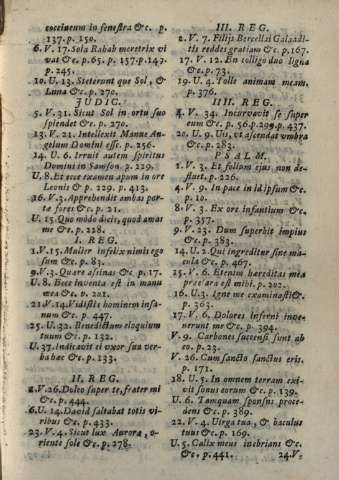 coccineum in fenestra &c. p.
137. p. 150.
6. V. 17. Sola Rahab meretrix vi
vat &c. p. 65. p. 157. p. 149.
p. 245.
10. U. 13. Steterunt que Sol, &
Luna &c. p. 270.
JUDIC.
5. V. 31. Sicut Sol in ortu suo
splendet &c. p. 270.
13. V. 21. Intellexit Manue An
gelum Domini esse. p. 256.
14. U. 6. Irruit autem spiritus
Domini in Samson. p. 229.
U. 8. Et ecce examen apum in ore
Leonis & p. 229. p. 413.
16. V. 3. Apprehendit ambas por
tæ fores &c. p. 21.
U. 15. Quo modo dicis, quod amas
me &c. p. 228.
I. REG.
1. V. 15. Mulier infelix nimis ego
sum &c. p. 83.
9. V. 3. Quære asinas &c p. 17.
U. 8. Ecce inventa est in manu
mea &c. p. 201.
21. V. 14. Vidistis hominem insa-
num &c. p. 447.
25. U. 32. Benedictum eloquium
tuum &c. p. 132.
U. 37. Indicavit ei uxor sua ver-
ba hæc &c p. 133.
II. REG.
1. V. 26. Doleo super te, frater mi
&c. p. 444.
6. U. 14. David saltabat totis vi-
ribus &c p. 433.
23. V. 4. Sicut lux Auroræ, o-
riente sole &c. p. 278.
III. REG.
2. V. 7. Filijs Bercellai Galaadi-
tis reddes gratium &c p. 167.
17. V. 12. En colligo duo ligna
&c p. 73.
19. U. 4. Tolle animam meam.
p. 376.
IIII. REG.
4. V. 34. Incurvavit se super
eum &c. p. 56. p. 299. p. 437.
20. U. 9. Uis, ut ascendat umbra
&c p. 283.
PSALM.
1. V. 3. Et folium ejus non de-
fluet. p. 226.
4. V. 9. In pace in id ipsum &c.
p. 10.
8. V. 3. Ex ore infantium &c.
p. 357.
9. V. 23. Dum superbit impius
&c p. 383.
14. U. 2. Qui ingreditur sine ma-
cula &c p. 467.
15. V. 6. Etenim hæreditas mea
præclara est mihi. p. 202.
16. U. 3. Igne me examinasti &.
p. 303.
17. V. 6. Dolores inferni inve-
nerunt me &c p. 394.
V. 9. Carbones succensi sunt ab
eo p. 23.
V. 26. Cum sancto sanctus eris.
p. 171.
18. U. 5. In omnem terram exi-
vit sonus eorum &c p. 139.
U. 6. Tamquam sponsus proce-
dens &c p. 389.
22. V. 4. Uirga tua, & baculus
tuus &c p. 169.
U. 5. Calix meus inebrians &c.
&c. p. 441.
24. V.